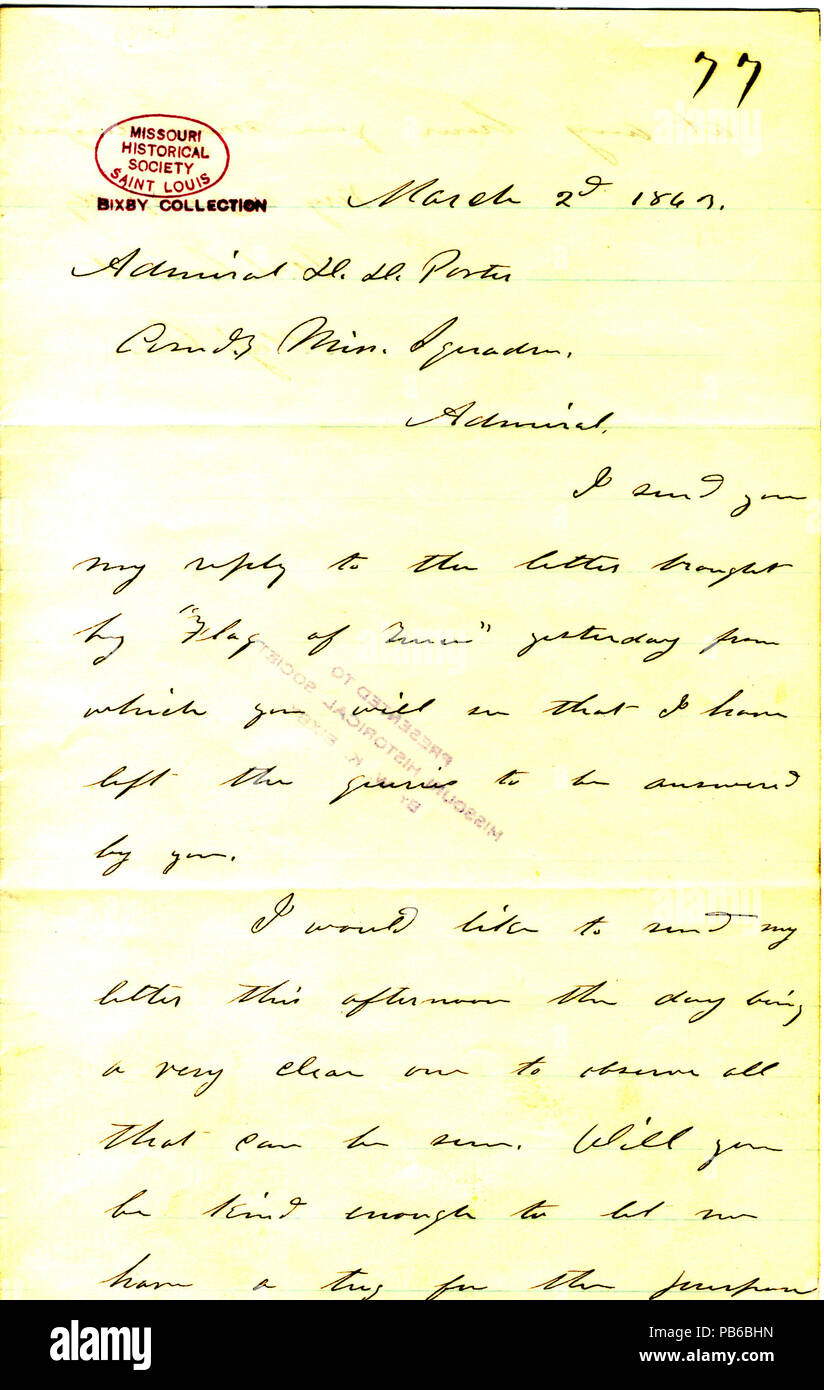 77
MISSOURI
HISTORICAL
SOCIETY
SAINT LOUIS
BIXBY COLLECTION
March 2d 1863.
Admiral D. D. Porter
Comd'g Miss. Squadron.
Admiral,
I send you
my reply to the letter brought
by "Flag of Truce" yesterday from
which you will see that I have
left the queries to be answered
by you.
I would like to send my
letter this afternoon the day being
a very clear one to observe all
that can be seen. Will you
be kind enough to let me
have a tug for the purpose
PRESENTED TO
MISSOURI HISTORICAL SOCIETY
BY
W. K. BIXBY
alamy
Image ID: PB6BHN
www.alamy.com